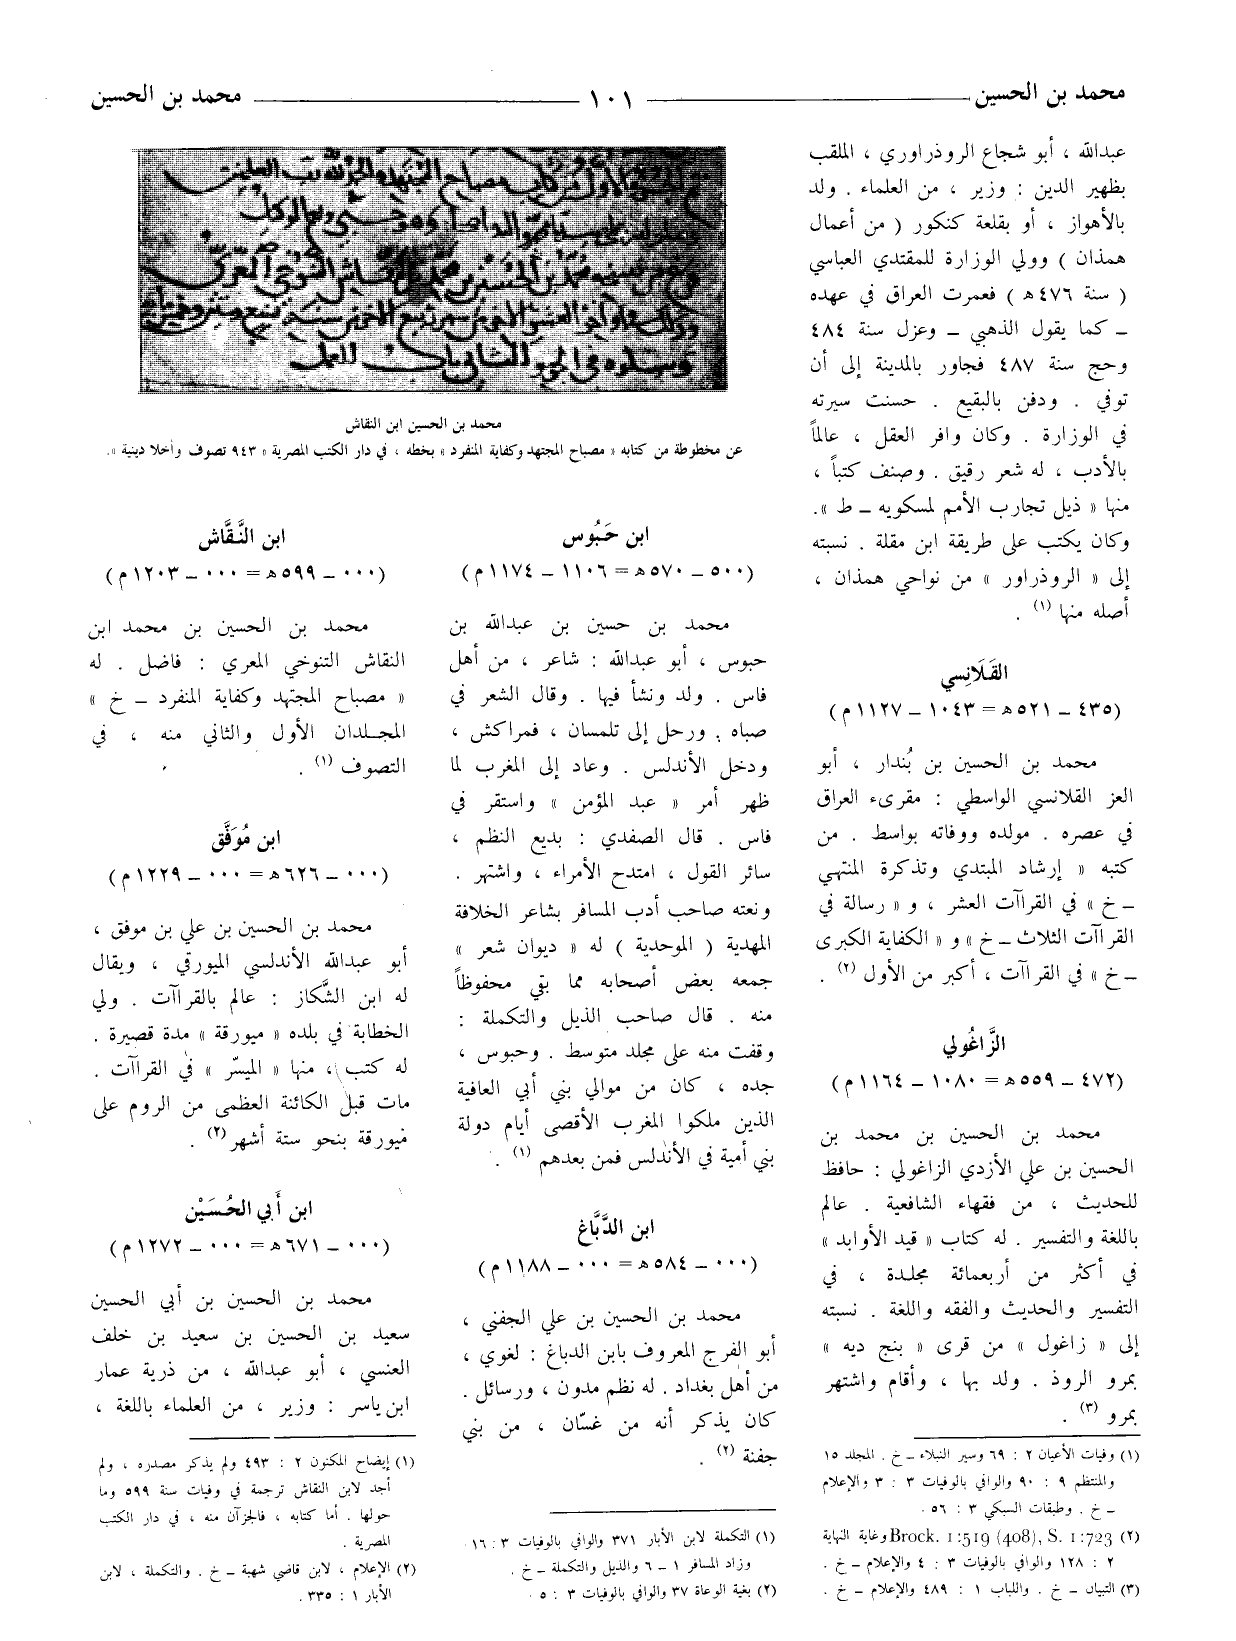 محمد بن الحسين ١٠١ محمد بن الحسين
عبدالله ، أبو شجاع الروذراوري ، الملقب
بظهير الدين : وزير ، من العلماء . ولد
بالأهواز ، أو بقلعة كنكور ( من أعمال
همذان ) وولي الوزارة للمقتدي العباسي
( سنة ٤٧٦ ه ) فعمرت العراق في عهده
ــ كما يقول الذهبي ــ وعزل سنة ٤٨٤
وحج سنة ٤٨٧ فجاور بالمدينة إلى أن
توفي . ودفن بالبقيع . حسنت سيرته
في الوزارة . وكان وافر العقل ، عالماً
بالأدب ، له شعر رقيق . وصنف كتباً ،
منها « ذيل تجارب الأمم لمسكويه ــ ط ».
وكان يكتب على طريقة ابن مقلة . نسبته
إلى « الروذراور » من نواحي همذان ،
أصله منها (١) .
القَلَانِسي
(٤٣٥ ــ ٥٢١ ه = ١٠٤٣ ــ ١١٢٧ م)
محمد بن الحسين بن بُندار ، أبو
العز القلانسي الواسطي : مقرىء العراق
في عصره . مولده ووفاته بواسط . من
كتبه « إرشاد المبتدي وتذكرة المنتهي
ــ خ » في القراآت العشر ، و « رسالة في
القراآت الثلاث ــ خ » و « الكفاية الكبرى
ــ خ » في القراآت ، أكبر من الأول (٢) .
الزَّاغُولي
(٤٧٢ ــ ٥٥٩ ه = ١٠٨٠ ــ ١١٦٤ م)
محمد بن الحسين بن محمد بن
الحسين بن علي الأزدي الزاغولي : حافظ
للحديث ، من فقهاء الشافعية . عالم
باللغة والتفسير . له كتاب « قيد الأوابد »
في أكثر من أربعمائة مجلدة ، في
التفسير والحديث والفقه واللغة . نسبته
إلى « زاغول » من قرى « بنج ديه »
بمرو الروذ . ولد بها ، وأقام واشتهر
بمرو (٣) .
(١) وفيات الأعيان ٢ : ٦٩ وسير النبلاء ــ خ . المجلد ١٥
والمنتظم ٩ : ٩٠ والوافي بالوفيات ٣ : ٣ والإعلام
ــ خ . وطبقات السبكي ٣ : ٥٦ .
(٢) Brock. 1:519 (408), S. 1:723 وغاية النهاية
٢ : ١٢٨ والوافي بالوفيات ٣ : ٤ والإعلام ــ خ .
(٣) التبيان ــ خ . واللباب ١ : ٤٨٩ والإعلام ــ خ .
محمد بن الحسين ابن النقاش
عن مخطوطة من كتابه « مصباح المجتهد وكفاية المنفرد » بخطه ، في دار الكتب المصرية « ٩٤٣ تصوف وأخلا دينية ».
ابن حَبُوس
(٥٠٠ ــ ٥٧٠ ه = ١١٠٦ ــ ١١٧٤ م)
محمد بن حسين بن عبدالله بن
حبوس ، أبو عبدالله : شاعر ، من أهل
فاس . ولد ونشأ فيها . وقال الشعر في
صباه . ورحل إلى تلمسان ، فمراكش ،
ودخل الأندلس . وعاد إلى المغرب لما
ظهر أمر « عبد المؤمن » واستقر في
فاس . قال الصفدي : بديع النظم ،
سائر القول ، امتدح الأمراء ، واشتهر .
ونعته صاحب أدب المسافر بشاعر الخلافة
المهدية ( الموحدية ) له « ديوان شعر »
جمعه بعض أصحابه مما بقي محفوظاً
منه . قال صاحب الذيل والتكملة :
وقفت منه على مجلد متوسط . وحبوس ،
جده ، كان من موالي بني أبي العافية
الذين ملكوا المغرب الأقصى أيام دولة
بني أمية في الأندلس فمن بعدهم (١) .
ابن الدَّبَّاغ
(٠٠٠ ــ ٥٨٤ ه = ٠٠٠ ــ ١١٨٨ م)
محمد بن الحسين بن علي الجفني ،
أبو الفرج المعروف بابن الدباغ : لغوي ،
من أهل بغداد . له نظم مدون ، ورسائل .
كان يذكر أنه من غسّان ، من بني
جفنة (٢) .
(١) التكملة لابن الأبار ٣٧١ والوافي بالوفيات ٣ : ١٦
وزاد المسافر ١ ــ ٦ والذيل والتكملة ــ خ .
(٢) بغية الوعاة ٣٧ والوافي بالوفيات ٣ : ٥ .
ابن النَّقَّاش
(٠٠٠ ــ ٥٩٩ ه = ٠٠٠ ــ ١٢٠٣ م)
محمد بن الحسين بن محمد ابن
النقاش التنوخي المعري : فاضل . له
« مصباح المجتهد وكفاية المنفرد ــ خ »
المجلدان الأول والثاني منه ، في
التصوف (١) .
ابن مُوَفَّق
(٠٠٠ ــ ٦٢٦ ه = ٠٠٠ ــ ١٢٢٩ م)
محمد بن الحسين بن علي بن موفق ،
أبو عبدالله الأندلسي الميورقي ، ويقال
له ابن الشَّكاز : عالم بالقراآت . ولي
الخطابة في بلده « ميورقة » مدة قصيرة .
له كتب ، منها « الميسّر » في القراآت .
مات قبل الكائنة العظمى من الروم على
ميورقة بنحو ستة أشهر (٢) .
ابن أَبي الحُسَيْن
(٠٠٠ ــ ٦٧١ ه = ٠٠٠ ــ ١٢٧٢ م)
محمد بن الحسين بن أبي الحسين
سعيد بن الحسين بن سعيد بن خلف
العنسي ، أبو عبدالله ، من ذرية عمار
ابن ياسر : وزير ، من العلماء باللغة ،
(١) إيضاح المكنون ٢ : ٤٩٣ ولم يذكر مصدره ، ولم
أجد لابن النقاش ترجمة في وفيات سنة ٥٩٩ وما
حولها . أما كتابه ، فالجزآن منه ، في دار الكتب
المصرية .
(٢) الإعلام ، لابن قاضي شهبة ــ خ . والتكملة ، لابن
الأبار ١ : ٣٣٥ .